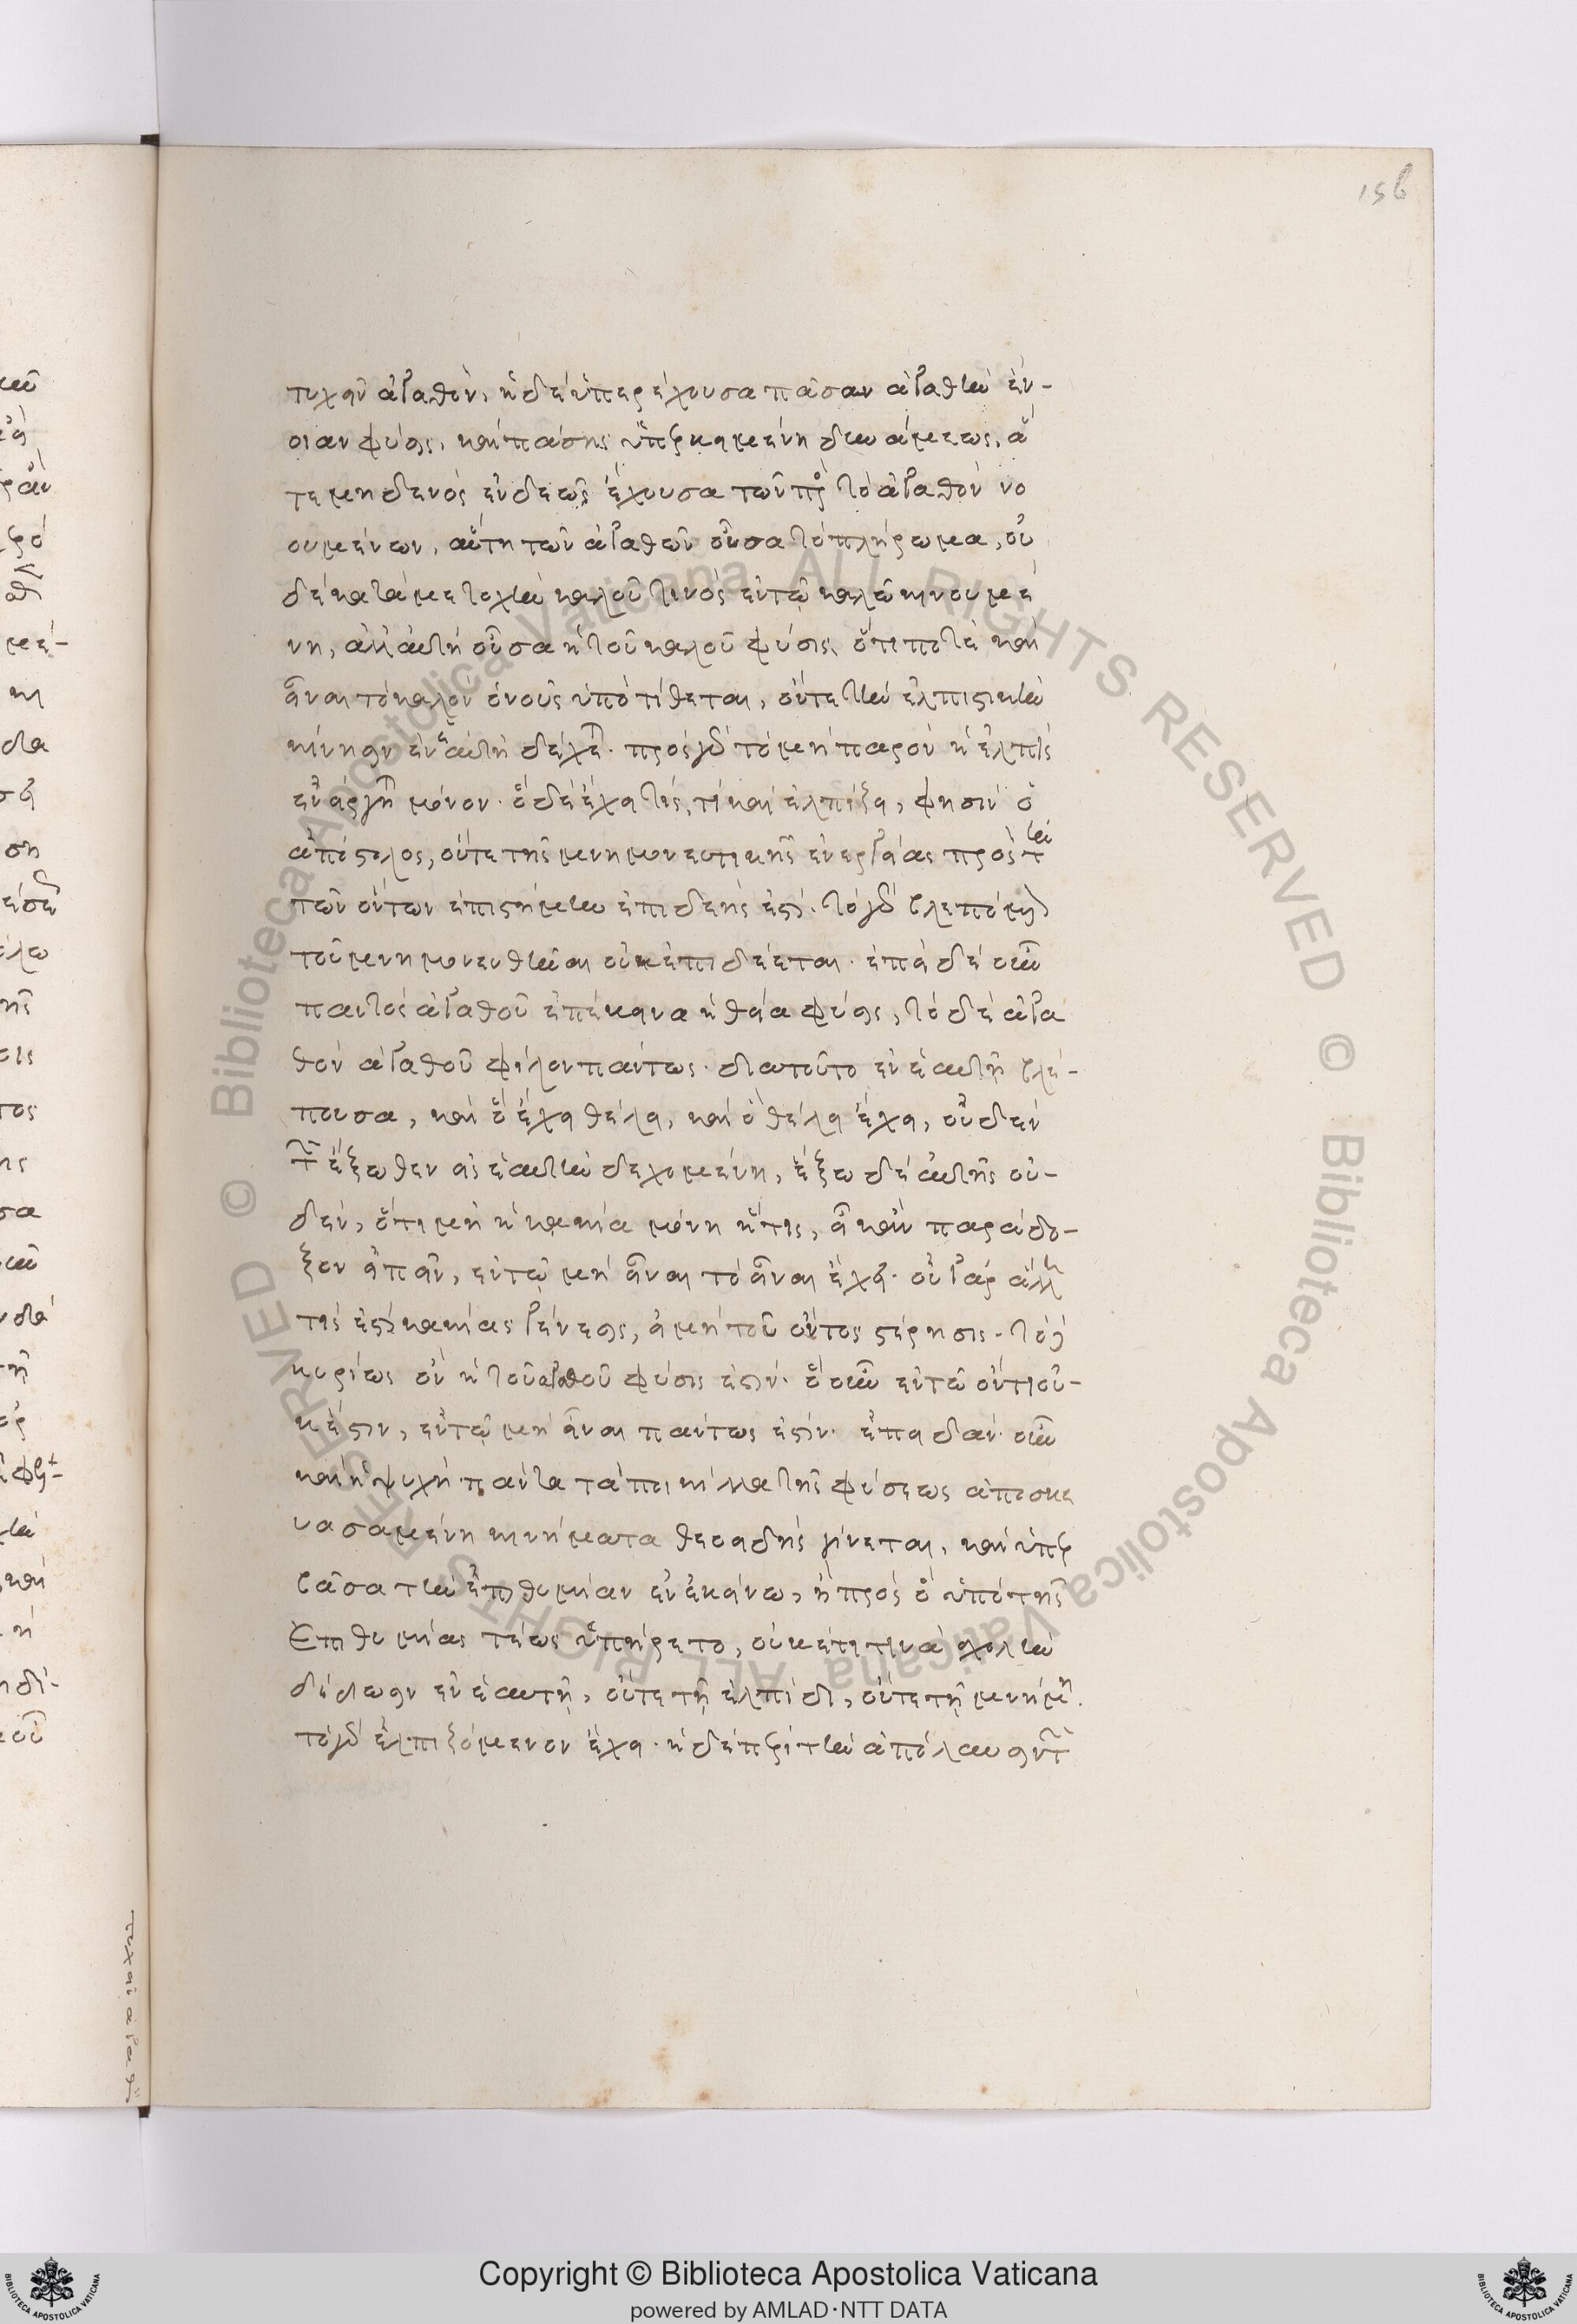 156
τυχεῖν ἀγαθόν, ἡ δὲ ὑπερέχουσα πᾶσαν ἀγαθὴν ἔν-
οιαν φύσις, καὶ πάσης ὑπερκειμένη δυνάμεως, ἅ
τε μηδενὸς ἐνδεῶς ἔχουσα τῶν πρὸς τὸ ἀγαθὸν νο
ουμένων, αὕτη τῶν ἀγαθῶν οὖσα τὸ πλήρωμα, οὐ
δὲ κατὰ μετοχὴν καλοῦ τινὸς ἐν τῷ καλῷ κινουμέ
νη, ἀλλ' αὐτὴ οὖσα ἡ τοῦ καλοῦ φύσις, ὅτι ποτὲ καὶ
εἶναι τὸ καλὸν ὁ νοῦς ὑποτίθεται, οὔτε τὴν ἐλπιστικὴν
κίνησιν ἐν ἑαυτῇ δέχεται. πρὸς γὰρ τὸ μὴ παρὸν ἡ ἐλπὶς
ἐνεργεῖ μόνον. ὃ δὲ ἔχει τίς, τί καὶ ἐλπίζει, φησὶν ὁ
ἀπόστολος, οὔτε τῆς μνημονευτικῆς ἐνεργείας πρὸς τὴν
τῶν ὄντων ἐπιστήμην ἐπιδεής ἐστι. τὸ γὰρ βλεπόμενον
τοῦ μνημονευθῆναι οὐκ ἐπιδέεται. ἐπεὶ δὲ οὖν
παντὸς ἀγαθοῦ ἐπέκεινα ἡ θεία φύσις, τὸ δὲ ἀγα
θὸν ἀγαθοῦ φίλον πάντως. διατοῦτο ἐν ἑαυτῇ βλέ-
πουσα, καὶ ὃ ἔχει θέλει, καὶ ὃ θέλει ἔχει, οὐδὲν
τῶν ἔξωθεν εἰς ἑαυτὴν δεχομένη, ἔξω δὲ αὐτῆς οὐ-
δὲν, ὅτι μὴ ἡ κακία μόνη ἥτις, εἰ καὶ παράδο-
ξον εἰπεῖν, ἐν τῷ μὴ εἶναι τὸ εἶναι ἔχει. οὐ γὰρ ἄλλη
τίς ἐστι κακίας γένεσις, εἰ μὴ τοῦ ὄντος στέρησις. τὸ δὲ
κυρίως ὂν ἡ τοῦ ἀγαθοῦ φύσις ἐστίν. ὃ οὖν ἐν τῷ ὄντι οὐ-
κ ἔστιν, ἐν τῷ μὴ εἶναι πάντως ἐστίν. ἐπειδὰν οὖν
καὶ ἡ ψυχὴ πάντα τὰ ποικίλα τῆς φύσεως ἀποσκε
υασαμένη κινήματα θεοειδὴς γίνεται, καὶ ὑπερ
βᾶσα τὴν ἐπιθυμίαν ἐν ἐκείνω, ᾖ πρὸς ὃ ὑπὸ τῆς
Ἐπιθυμίας τέως ὑπῄρετο, οὐκέτι τινὰ σχολὴν
δίδωσιν ἐν ἑαυτῇ, οὔτε τῇ ἐλπίδι, οὔτε τῇ μνήμῃ.
τὸ γὰρ ἐλπιζόμενον ἔχει. ἡ δὲ περὶ τὴν ἀπόλαυσιν τῶν
Copyright © Biblioteca Apostolica Vaticana
powered by AMLAD·NTT DATA